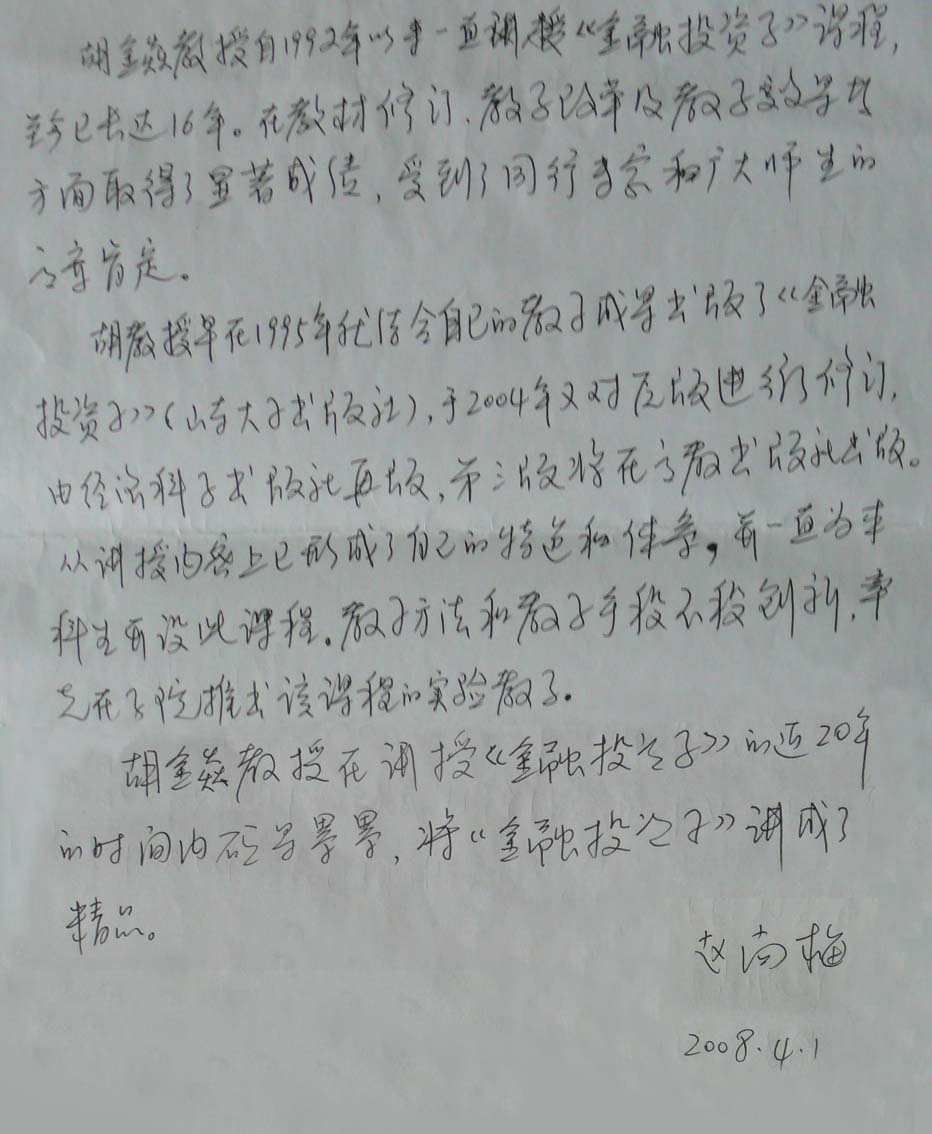 胡金焱教授自1992年以来一直讲授《金融投资学》课程，
至今已长达16年。在教材修订、教学改革及教学效果等
方面取得了显著成绩，受到了同行专家和广大师生的
高度肯定。
胡教授早在1995年就结合自己的教学成果出版了《金融
投资学》（山东大学出版社），于2004年又对原版进行修订，
由经济科学出版社再版，第三版将在高教出版社出版。
从讲授内容上已形成了自己的特色和体系，并一直为本
科生开设此课程。教学方法和教学手段不段创新，率
先在学院推出该课程的实验教学。
胡金焱教授在讲授《金融投资学》的近20年
的时间内硕果累累，将"金融投资学"讲成了
精品。
赵尚梅
2008.4.1